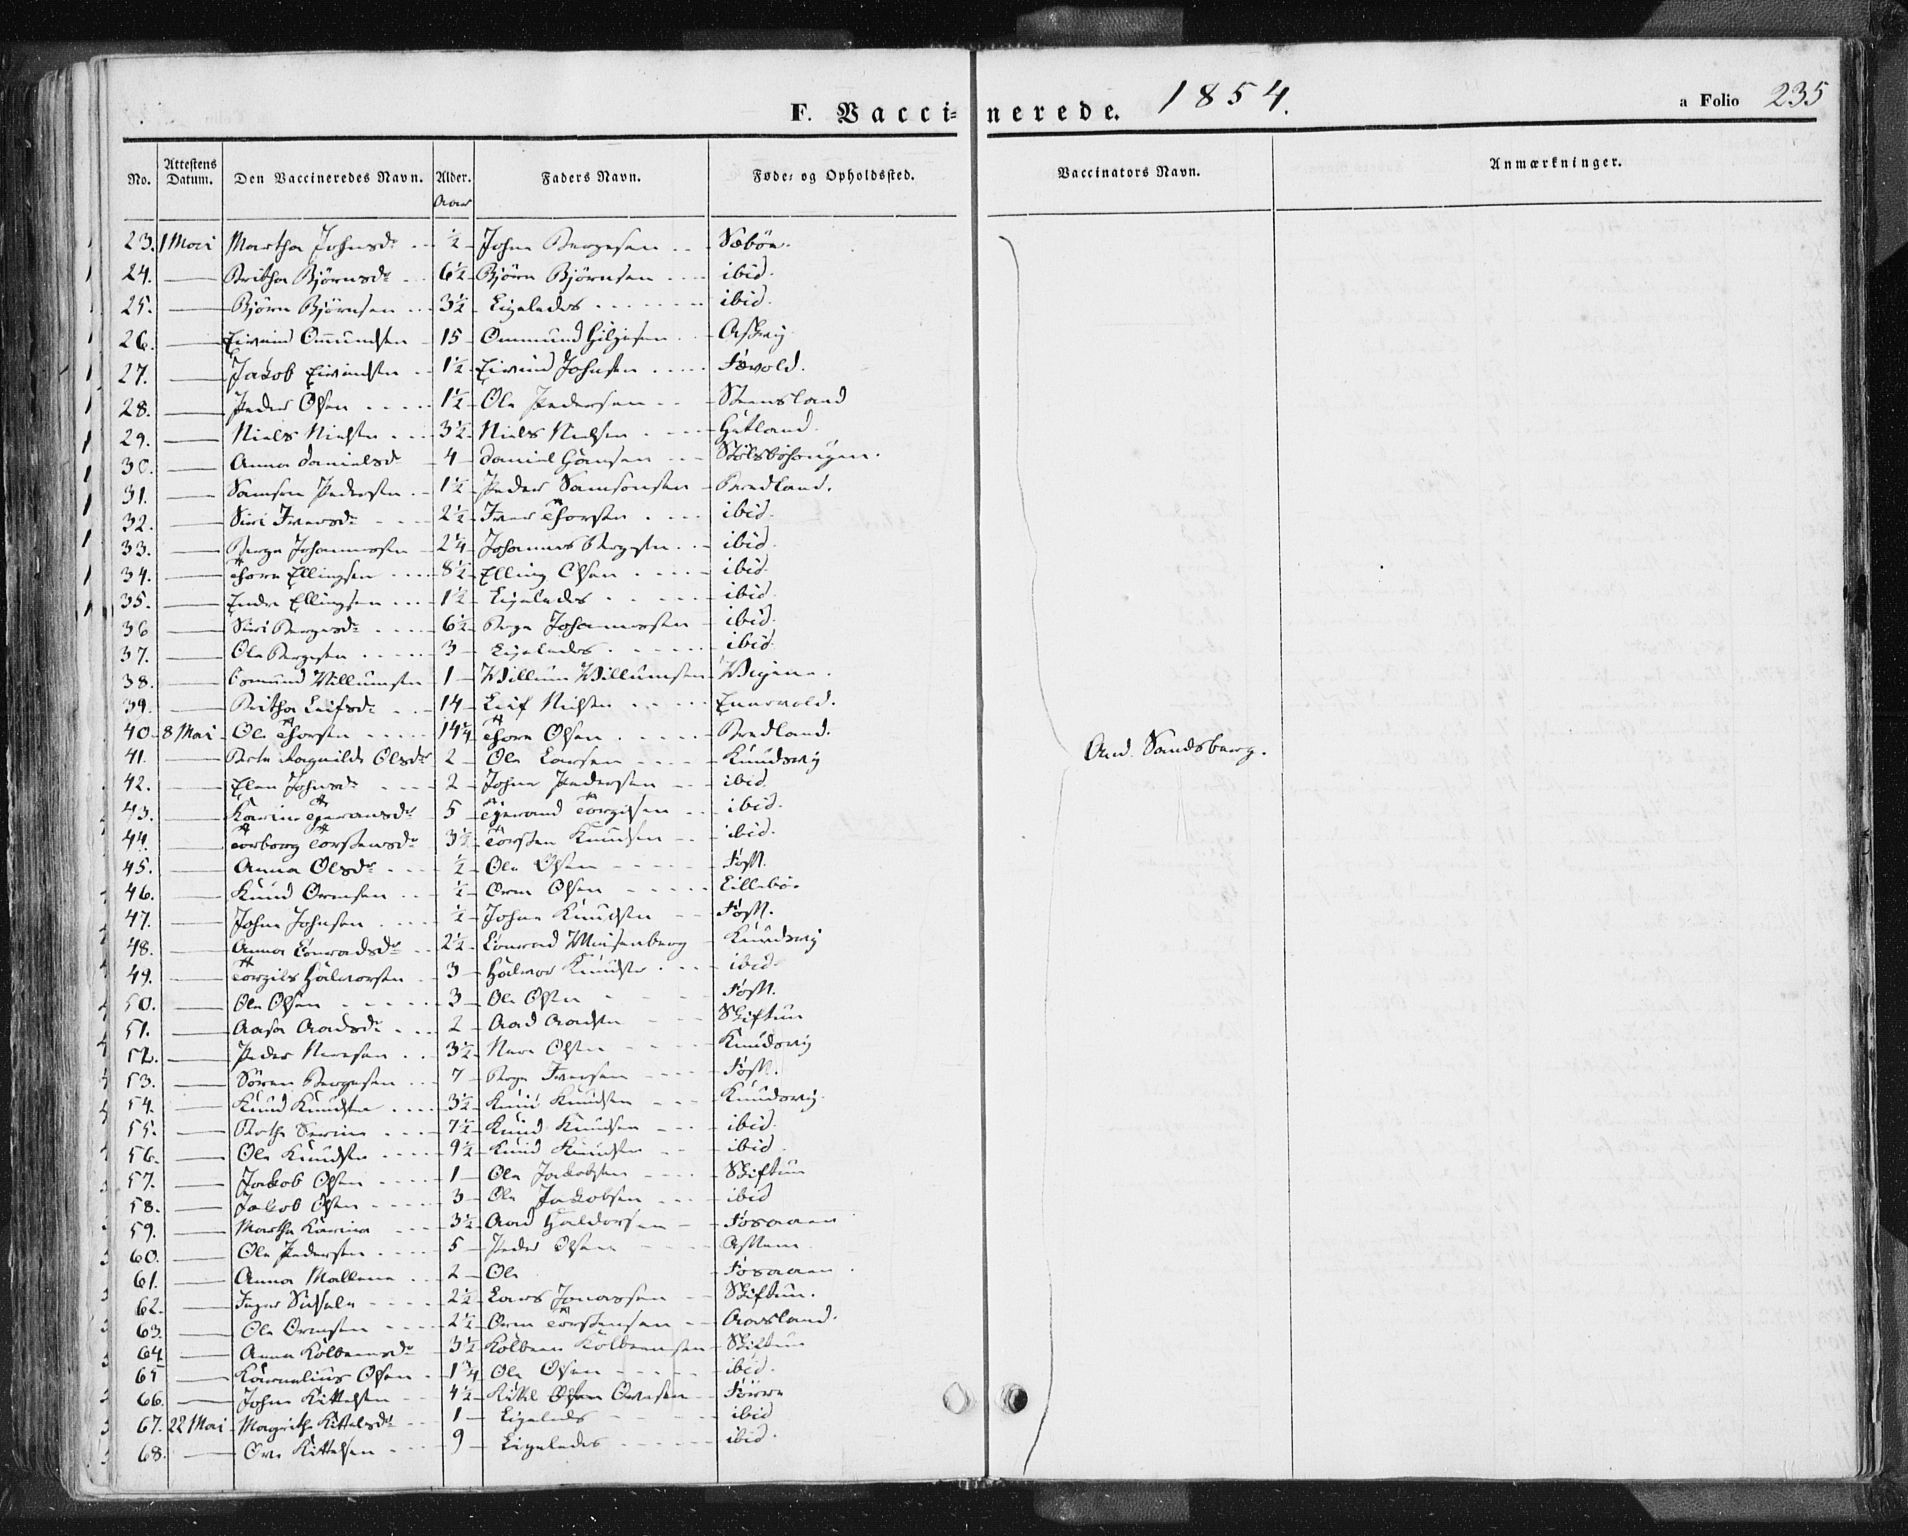 F. Vaccinerede. 1854. a Folio 235
No. Attestens Datum. Den Vaccineredes Navn. Alder. Faders Navn. Føde- og Opholdssted. Vaccinators Navn. Anmærkninger.
Aar
23. 1 Mai Martha Johnsdr ½ John Bergesen Sæbøe.
24. Britha Bjørnsdr 6½ Bjørn Bjørnsen ibid.
25. Bjørn Bjørnsen 3½ Ligeledes ibid.
26. Eivind Omundsen 15 Ommund Askvig
27. Jakob Eivindsen 1½ Eivind Johnsen Fævold.
28. Peder Olsen 1½ Ole Pedersen Steensland
29. Niels Nielsen 3½ Niels Nielsen Hetland.
30. Anna Danielsdr 4 Daniel Hansen
31. Samson Pedersen 1½ Peder Samsonsen Bredland.
32. Siri Iversdr 2½ Iver Thorsen ibid.
33. Berge Johannessen 2¼ Johannes Bergesen ibid.
34. Thore Ellingsen 8½ Elling Olsen ibid.
35. Endre Ellingsen 1½ Ligeledes ibid.
36 Siri Bergesdr 6½ Berge Johannessen ibid.
37. Ole Bergesen 3 Ligeledes ibid.
38. Osmund Willumsen 1 Willum Willumsen
39. Britha Leifsdr 14 Leif Nielsen
40 8 Mai Ole Thorsen 14¼ Thore Olsen Bredland.
41. Berte Ragnilde Olsdr 2 Ole Larsen Knudsvig
And. Sandsberg.
42. Elen Johnsdr 2 John Pedersen ibid.
43. Karine Tjeransdr 5 Tjerand Torgilsen ibid.
44. Torborg Torstensdr 3½ Torsten Knudsen ibid.
45. Anna Olsdr ½ Ole Olsen
46. Knud Ormsen ½ Orm Olsen Lillebø.
47. John Johnsen ½ John Knudsen
48. Anna Conradsdr 2½ Conrad Knudsvig
49. Torgils Halvorsen 3 Halvor Knudsen ibid.
50. Ole Olsen 3 Ole Olsen
51. Aasa Aadsdr 2 Aad Aadsen Skiftun
52. Peder Neresen 3½ Nere Olsen Knudsvig
53. Søren Bergesen 7 Berge Iversen
54. Knud Knudsen 3½ Knud Knudsen Knudsvig.
55. Serine 7½ Knud Knudsen ibid.
56. Ole Knudsen 9½ Knud Knudsen ibid.
57. Jakob Olsen 1 Ole Jakobsen Skiftun
58. Jakob Olsen 3 Ole Jakobsen ibid
59. Martha Karina 3½ Aad Haldorsen Fosaaen
60. Ole Pedersen 5 Peder Olsen
61. Anna Mallene 2 Ole Fosaaen.
62. Inger Sidsele 2½ Lars Jonassen Skiftun.
63. Ole Ormsen 2½ Orm Torstensen
64 Anna Kolbeensdr 3½ Kolbeen Kolbeensen Skiftun
65 Kornelius Olsen 1¾ Ole Olsen ibid.
66. John Kittelsen 4½ Kittel Ormsen Førre
67. 22 Mai Magrith Kittelsdr 1 Ligeleds ibid
68. Orm Kittelsen 9 Ligeledes ibid.